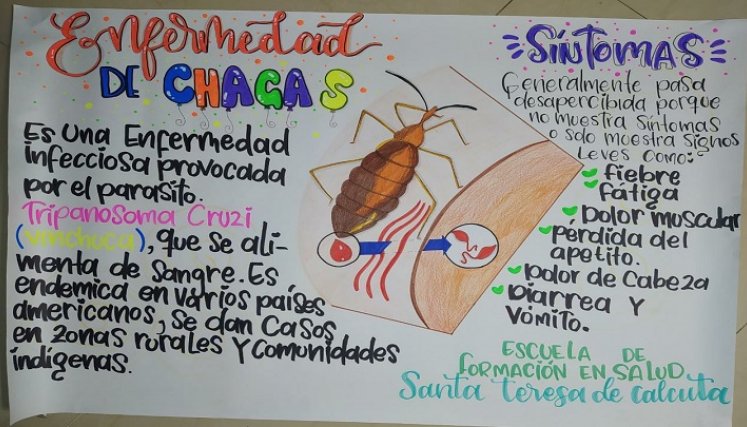 Enfermedad
DE CHAGAS
Es Una Enfermedad
infecciosa provocada
por el parasito.
Tripanosoma Cruzi
(vinchuca), que se ali-
menta de Sangre. Es
endemica en varios países
americanos, se dan Casos
en zonas rurales Y Comunidades
indígenas.
Síntomas
Generalmente pasa
desapercibida porque
no muestra Síntomas
o solo muestra Signos
Leves como:
fiebre
fátiga
Dolor muscular
pérdida del
apetito.
Dolor de Cabeza
Diarrea Y
Vómito.
ESCUELA DE
FORMACIÓN EN SALUD
Santa teresa de calcuta